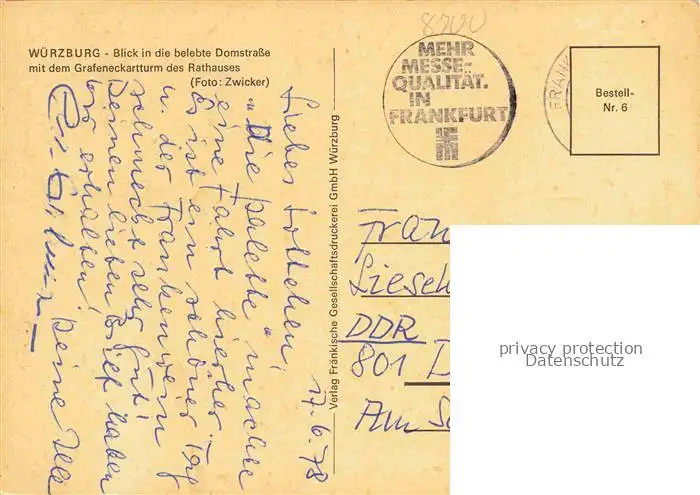 WÜRZBURG - Blick in die belebte Domstraße
mit dem Grafeneckartturm des Rathauses
(Foto: Zwicker)
17.6.78
Liebes Lottchen,
"Die Palette" machte
eine Fahrt hierher.
Es ist ein schöner Tag
u. der Frankenwein
schmeckt sehr gut!
Deinen lieben Brief haben
wir erhalten!
Deine Ilse
Verlag Fränkische Gesellschaftsdruckerei GmbH Würzburg
8700
MEHR
MESSE-
QUALITÄT.
IN
FRANKFURT
FRANK
Bestell-
Nr. 6
Frau
Liesel
DDR
801 D
Am S
privacy protection
Datenschutz